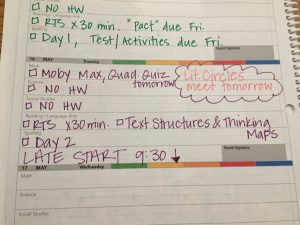 □ NO HW
Reading / Language Arts
□ RTS x 30 min. "Pact" due Fri.
Spelling
□ Day 1, Test/Activities due Fri.
Parent Signature
16 MAY Tuesday
Math
□ Moby Max, Quad. Quiz tomorrow
Lit. Circles
meet tomorrow
Science
□ NO HW
Social Studies
□ NO HW
Reading / Language Arts
□ RTS x30 min. □ Text Structures & Thinking Maps
Spelling
□ Day 2
LATE START 9:30 ↓
Parent Signature
17 MAY Wednesday
Math
Science
Social Studies